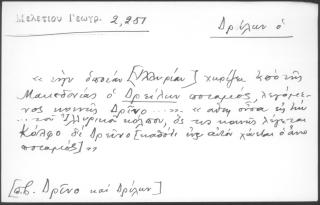 Μελετίου Γεωγρ. 2,251
Δρείλων ὁ
« τὴν ὁποίαν [Ἰλλυρίαν] χωρίζει ἀπὸ τῆς
Μακεδονίας ὁ Δρείλων ποταμὸς, λεγόμε-
νος κοινῶς Δρῖνο ... » « αὕτη οὖσα
... τοῦ Ἰλλυρικοῦ κόλπου, ὃς τις κοινῶς λέγεται
Κόλφο δὲ Δρῖνο [καθότι εἰς αὐτὸν χύνεται ὁ ἄνω
ποταμὸς] »
[πβ. Δρῖνο καὶ Δρίλων]